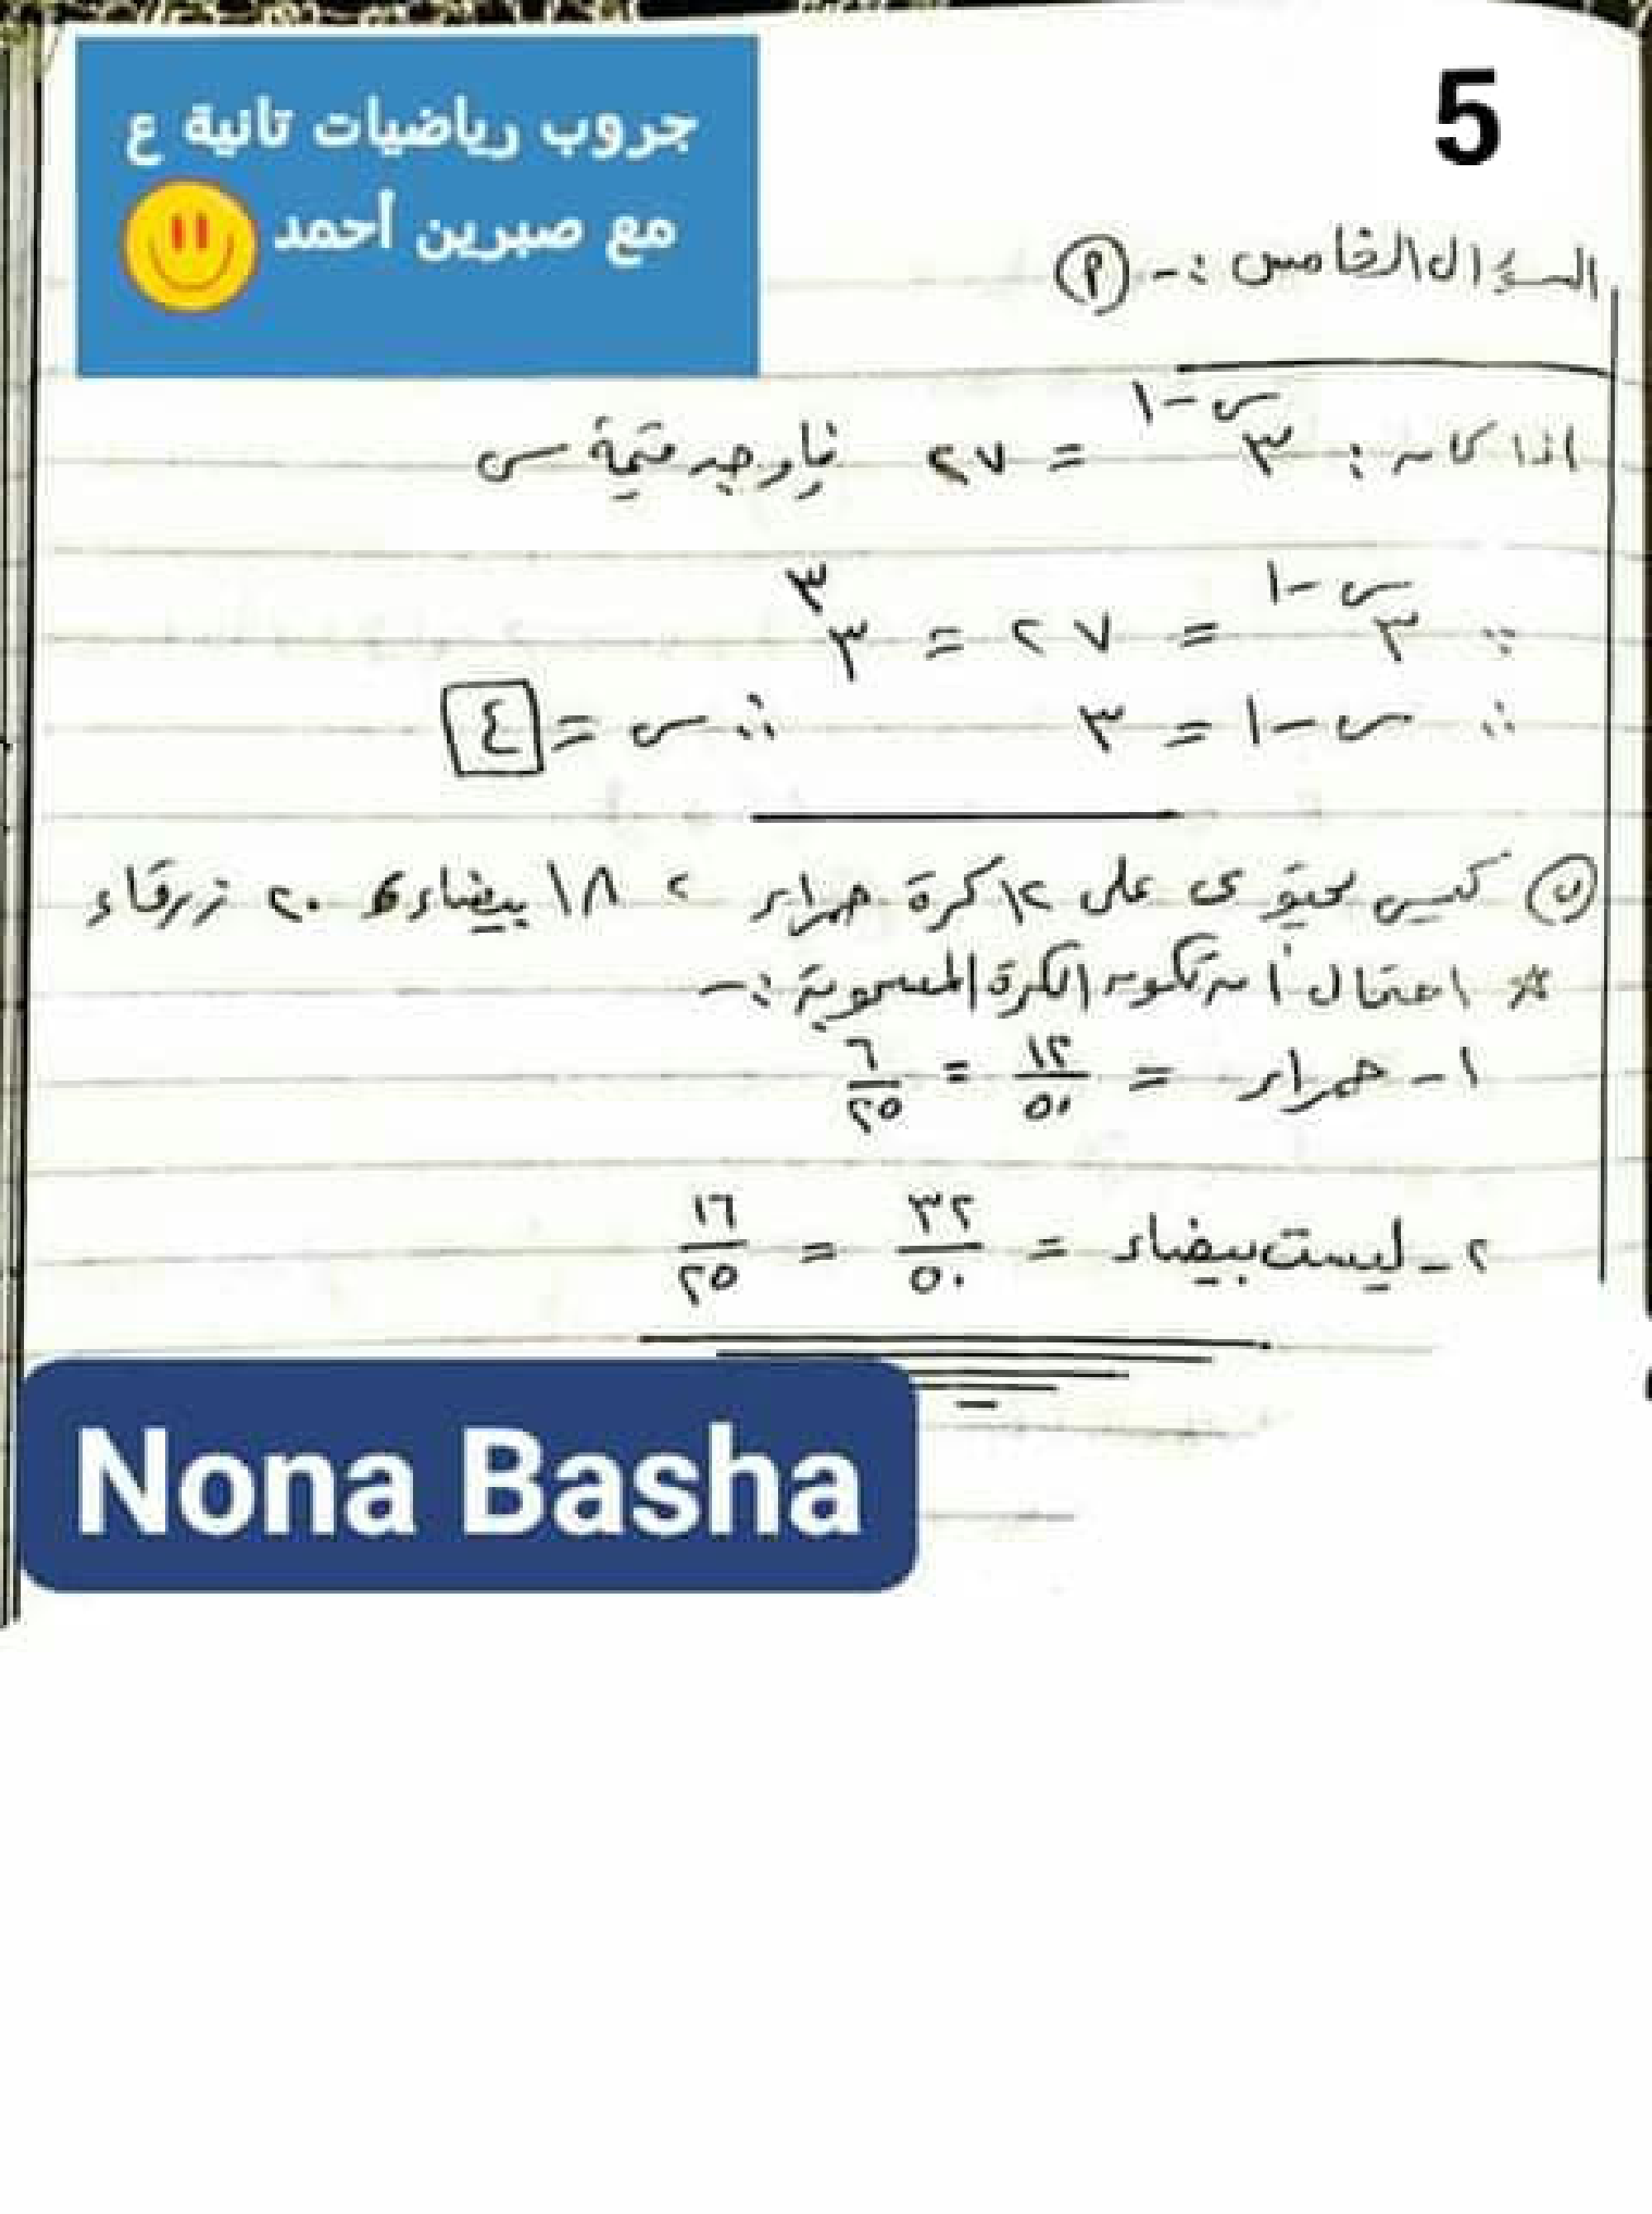 جروب رياضيات تانية ع
مع صبرين أحمد
5
السؤال الخامس :- (أ)
اذا كان : ٣^(س-١) = ٢٧ فأوجد قيمة س
∵ ٣^(س-١) = ٢٧ = ٣^٣
∴ س-١ = ٣ ∴ س = ٤
(ب) كيس يحتوى على ١٢ كرة حمراء ، ١٨ بيضاء ، ٢٠ زرقاء
* احتمال أن تكون الكرة المسحوبة :-
١- حمراء = ١٢/٥٠ = ٦/٢٥
٢- ليست بيضاء = ٣٢/٥٠ = ١٦/٢٥
Nona Basha